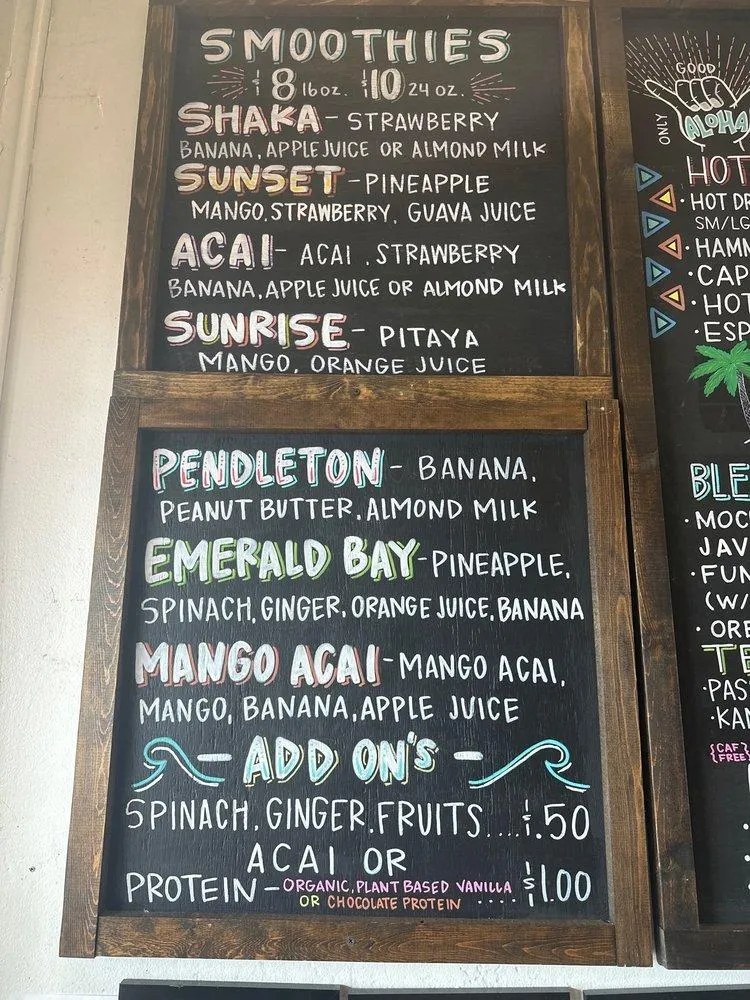 SMOOTHIES
$8 16oz. $10 24 oz.
SHAKA - STRAWBERRY
BANANA, APPLE JUICE OR ALMOND MILK
SUNSET - PINEAPPLE
MANGO, STRAWBERRY, GUAVA JUICE
ACAI - ACAI , STRAWBERRY
BANANA, APPLE JUICE OR ALMOND MILK
SUNRISE - PITAYA
MANGO, ORANGE JUICE
PENDLETON - BANANA,
PEANUT BUTTER, ALMOND MILK
EMERALD BAY - PINEAPPLE,
SPINACH, GINGER, ORANGE JUICE, BANANA
MANGO ACAI - MANGO ACAI,
MANGO, BANANA, APPLE JUICE
- ADD ON'S -
SPINACH, GINGER, FRUITS....$.50
ACAI OR
PROTEIN - ORGANIC, PLANT BASED VANILLA
OR CHOCOLATE PROTEIN .... $1.00
GOOD
ALOHA
ONLY
HOT
· HOT
SM/LG
·
·
· HOT
·
·
·
(W/
·
{CAF
FREE}